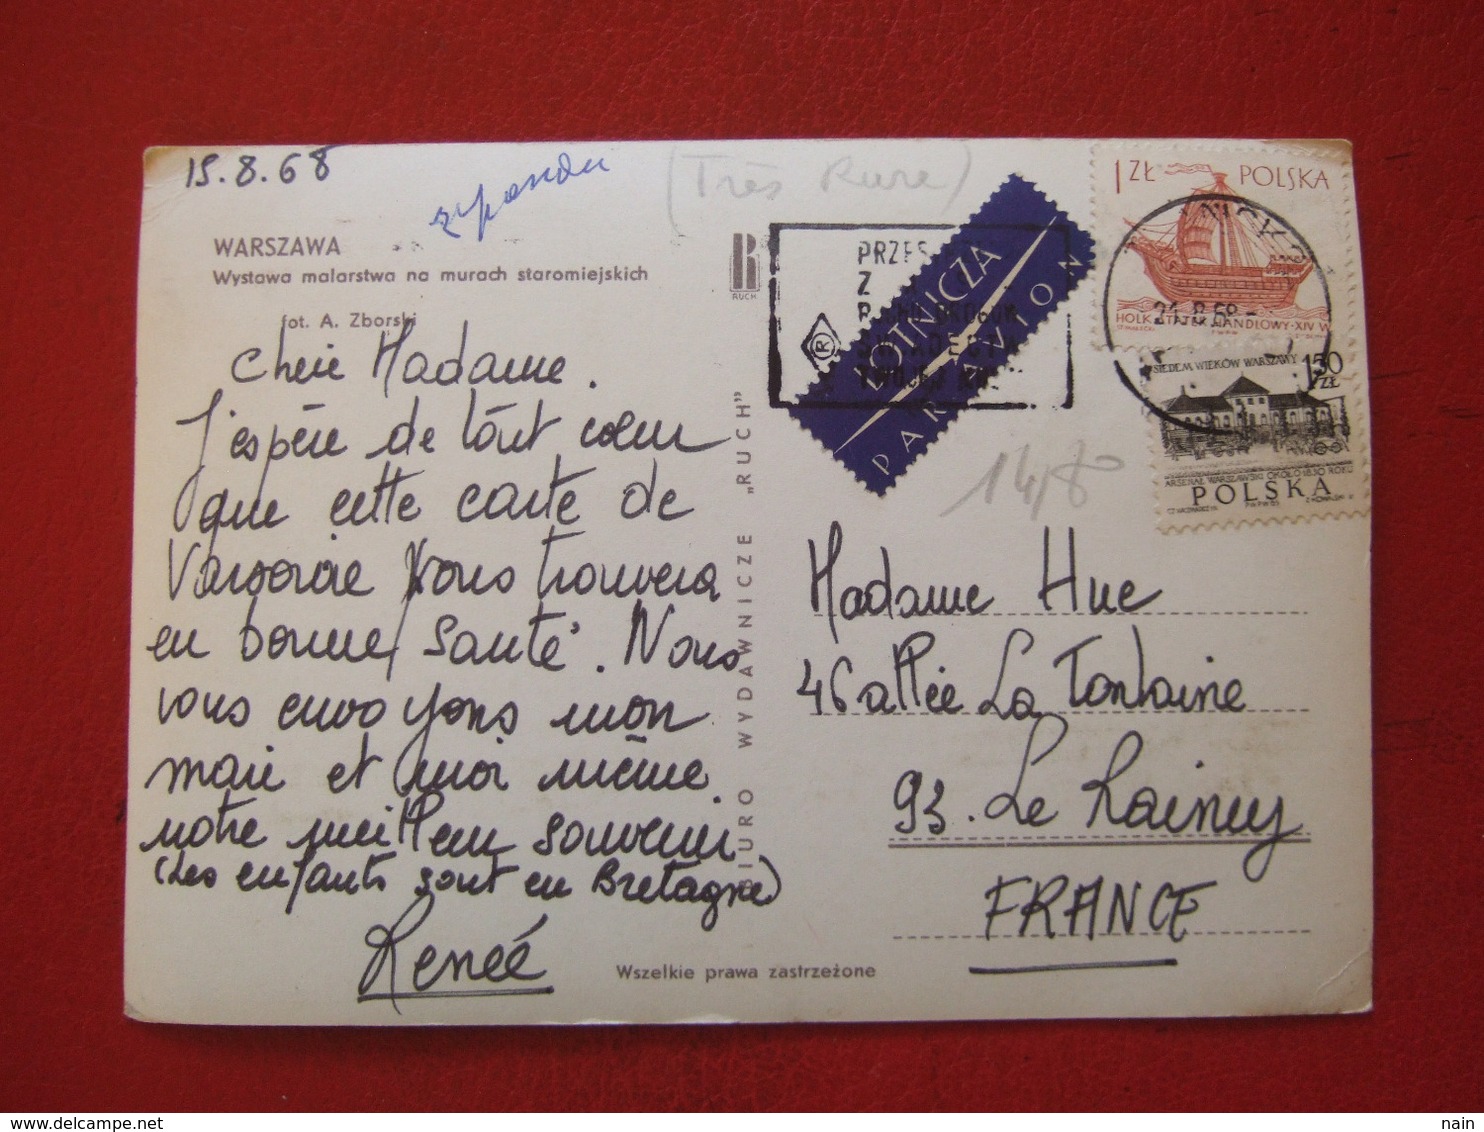 15.8.68
(Très Rare)
WARSZAWA
Wystawa malarstwa na murach staromiejskich
fot. A. Zborski
RUCH
Chère Madame.
J'espère de tout cœur
que cette carte de
Varsovie vous trouvera
en bonne santé. Nous
vous envoyons mon
mari et moi même
notre meilleur souvenir
(Les enfants sont en Bretagne)
Renée
BIURO WYDAWNICZE „RUCH"
Wszelkie prawa zastrzeżone
LOTNICZA
PAR AVION
TWOJE
21.8.68
1 ZŁ POLSKA
HOLK STATEK HANDLOWY-XIV W
SIEDEM WIEKÓW WARSZAWY
1,50 ZŁ
ARSENAŁ WARSZAWSKI OKOŁO 1830 ROKU
POLSKA
14/8
Madame Hue
46 allée La Fontaine
93. Le Raincy
FRANCE
nain
www.delcampe.net